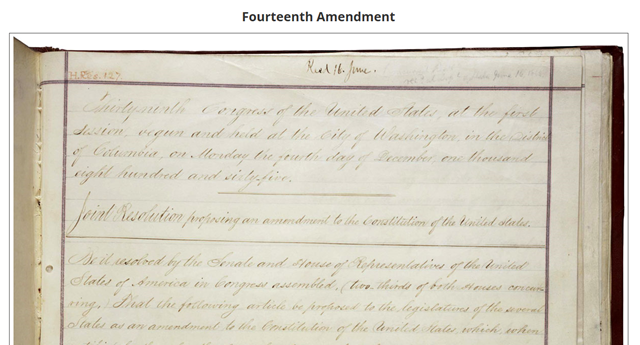 Fourteenth Amendment
H.Res. 127
Recd 16. June.
Thirty-ninth Congress of the United States, at the first
session, begun and held at the City of Washington, in the District
of Columbia, on Monday the fourth day of December, one thousand
eight hundred and sixty-five.
Joint Resolution proposing an amendment to the Constitution of the United States.
Be it resolved by the Senate and House of Representatives of the United
States of America in Congress assembled, (two thirds of both Houses concur-
ring,) That the following article be proposed to the legislatures of the several
States as an amendment to the Constitution of the United States, which, when